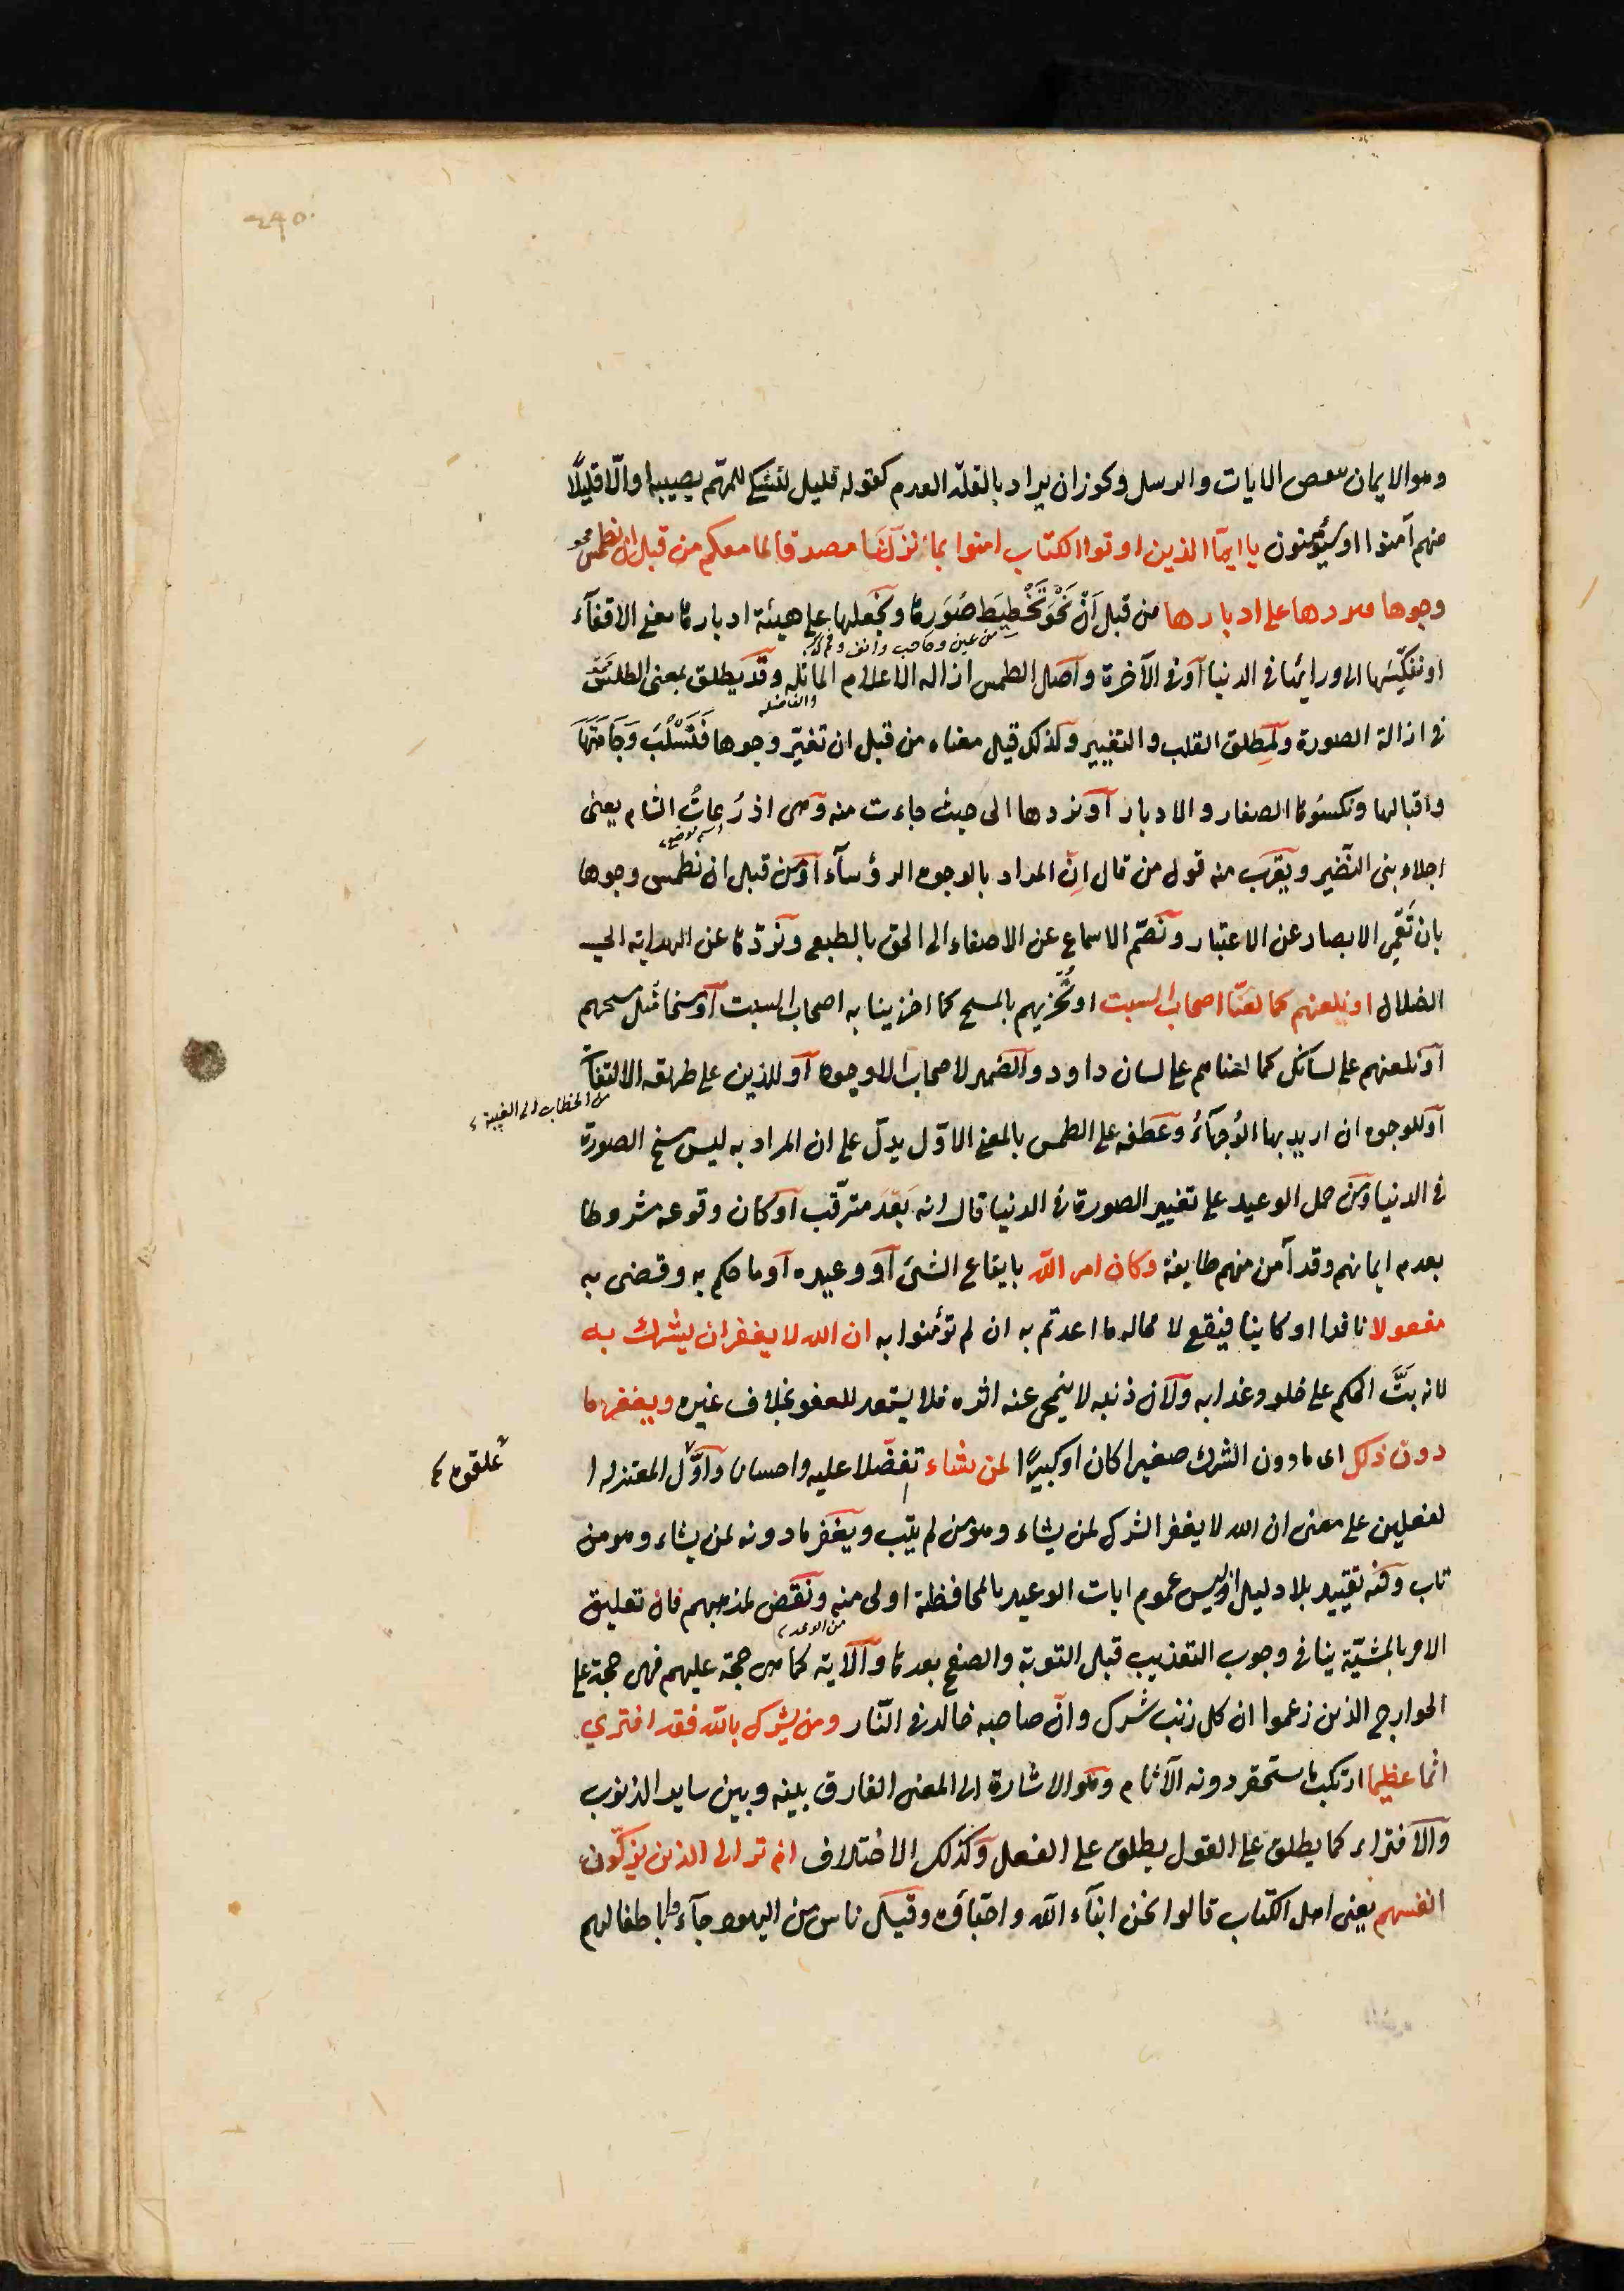 ٢٤٥
وهو الايمان ببعض الايات والرسل ويجوز ان يراد بالقلة العدم كقوله قليل التشكي للمهم يصيبه او الا قليلًا
منهم آمنوا او سيؤمنون يا ايها الذين اوتوا الكتاب امنوا بما نزلنا مصدقا لما معكم من قبل ان نطمس
وجوها فنردها على ادبارها من قبل ان نمحو تخطيط صورها ونجعلها على هيئة ادبارها معنى الاقفآء
من عين وحاجب وانف وفم
او ننكسها الى ورائها في الدنيا او في الآخرة واصل الطمس ازالة الاعلام الماثلة وقد يطلق بمعنى الطلس
في ازالة الصورة ولمطلق القلب والتغيير ولذلك قيل معناه من قبل ان نغير وجوها فنسلب وجاهتها
واقبالها ونكسوها الصغار والادبار او نردها الى حيث جاءت منه وهى اذرعات الشام يعنى
اسم موضع
اجلاء بنى النضير ويقرب منه قول من قال ان المراد بالوجوه الرؤسآء او من قبل ان نطمس وجوها
بان نعمي الابصار عن الاعتبار ونصم الاسماع عن الاصغاء الى الحق بالطبع ونردها عن الهداية الى
الضلال او نلعنهم كما لعنا اصحاب السبت او نخزيهم بالمسخ كما اخزينا به اصحاب السبت او مسخا مثل مسخهم
او نلعنهم على لسانك كما لعناهم على لسان داود والضمير لاصحاب الوجوه او للذين على طريقة الالتفات
من الخطاب الى الغيبة
او للوجوه ان اريد بها الوجهآء وعطفه على الطمس بالمعنى الاول يدل على ان المراد به ليس مسخ الصورة
في الدنيا ومن حمل الوعيد على تغيير الصورة في الدنيا قال انه بعد مترقب او كان وقوعه مشروطا
بعدم ايمانهم وقد آمن منهم طايفة وكان امر الله بايقاع الشئ او وعيده او ما حكم به وقضى به
مفعولا نافذا او كاينا فيقع لا محاله ما اوعدتم به ان لم تؤمنوا به ان الله لا يغفر ان يشرك به
لانه بت الحكم على خلود عذابه ولان ذنبه لا ينمحى عنه اثره فلا يستعد للعفو بخلاف غيره ويغفر ما
دون ذلك اى ما دون الشرك صغيرا كان او كبيرًا لمن يشاء تفضلا عليه واحسانا واول المعتزله ا
علقوه
لفعلين على معنى ان الله لا يغفر الشرك لمن يشاء وهو من لم يتب ويغفر ما دونه لمن يشاء وهو من
تاب وفيه تقييد بلا دليل اذ ليس عموم ايات الوعيد بالمحافظة اولى منه ونقض لمذهبهم فان تعليق
من الوعد
الامر بالمشيّة ينافي وجوب التعذيب قبل التوبة والصفح بعدها والآية كما هى حجة عليهم فهى حجة على
الخوارج الذين زعموا ان كل ذنب شرك وان صاحبه خالد في النار ومن يشرك بالله فقد افترى
اثما عظيما ارتكب ما يستحقر دونه الآثام وهو الاشارة الى المعنى الفارق بينه وبين ساير الذنوب
والافتراء كما يطلق على القول يطلق على الفعل وكذلك الاختلاف الم تر الى الذين يزكون
انفسهم يعنى اهل الكتاب قالوا نحن ابنآء الله واحباؤه وقيل ناس من اليهود جآءوا باطفالهم